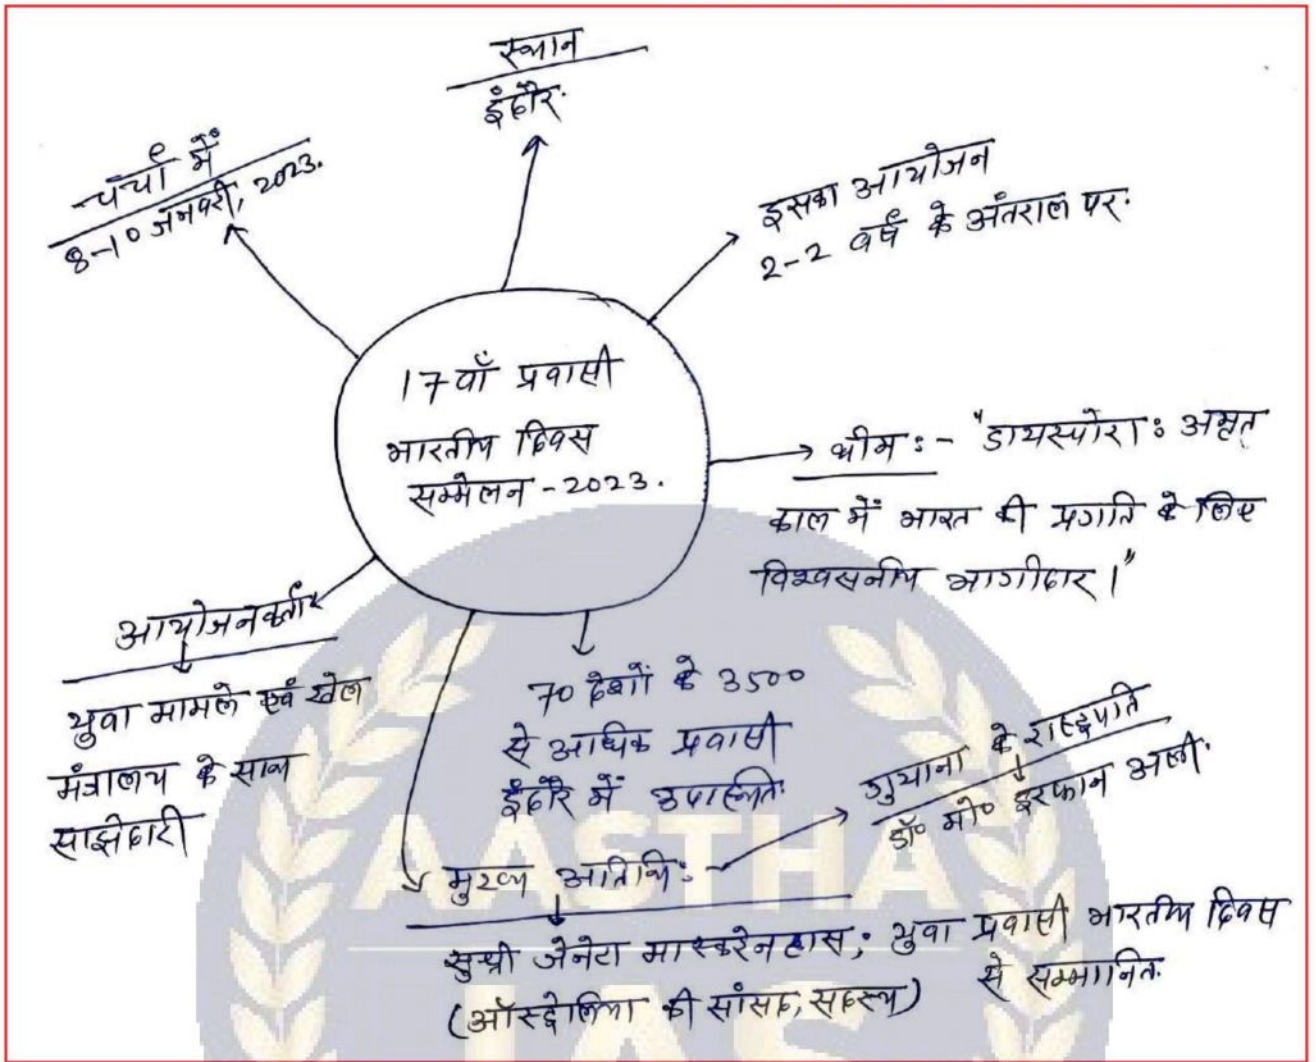 स्थान
इंदौर.
चर्चा में
8-10 जनवरी, 2023.
इसका आयोजन
2-2 वर्ष के अंतराल पर.
17वाँ प्रवासी
भारतीय दिवस
सम्मेलन-2023.
थीम :- "डायस्पोरा: अमृत
काल में भारत की प्रगति के लिए
विश्वसनीय भागीदार।"
आयोजनकर्ता
युवा मामले एवं खेल
मंत्रालय के साथ
साझेदारी
70 देशों के 3500
से अधिक प्रवासी
इंदौर में उपस्थित.
मुख्य अतिथि:-
गुयाना के राष्ट्रपति
डॉ० मो० इरफान अली.
सुश्री जेनेटा मास्करेनहास; युवा प्रवासी भारतीय दिवस
(ऑस्ट्रेलिया की सांसद, सदस्य) से सम्मानित.
AASTHA
IAS